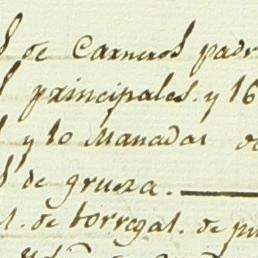 de Carneros padr
principales. y 16
y 10 Manadas de
de grueza.
de borregal. de pu